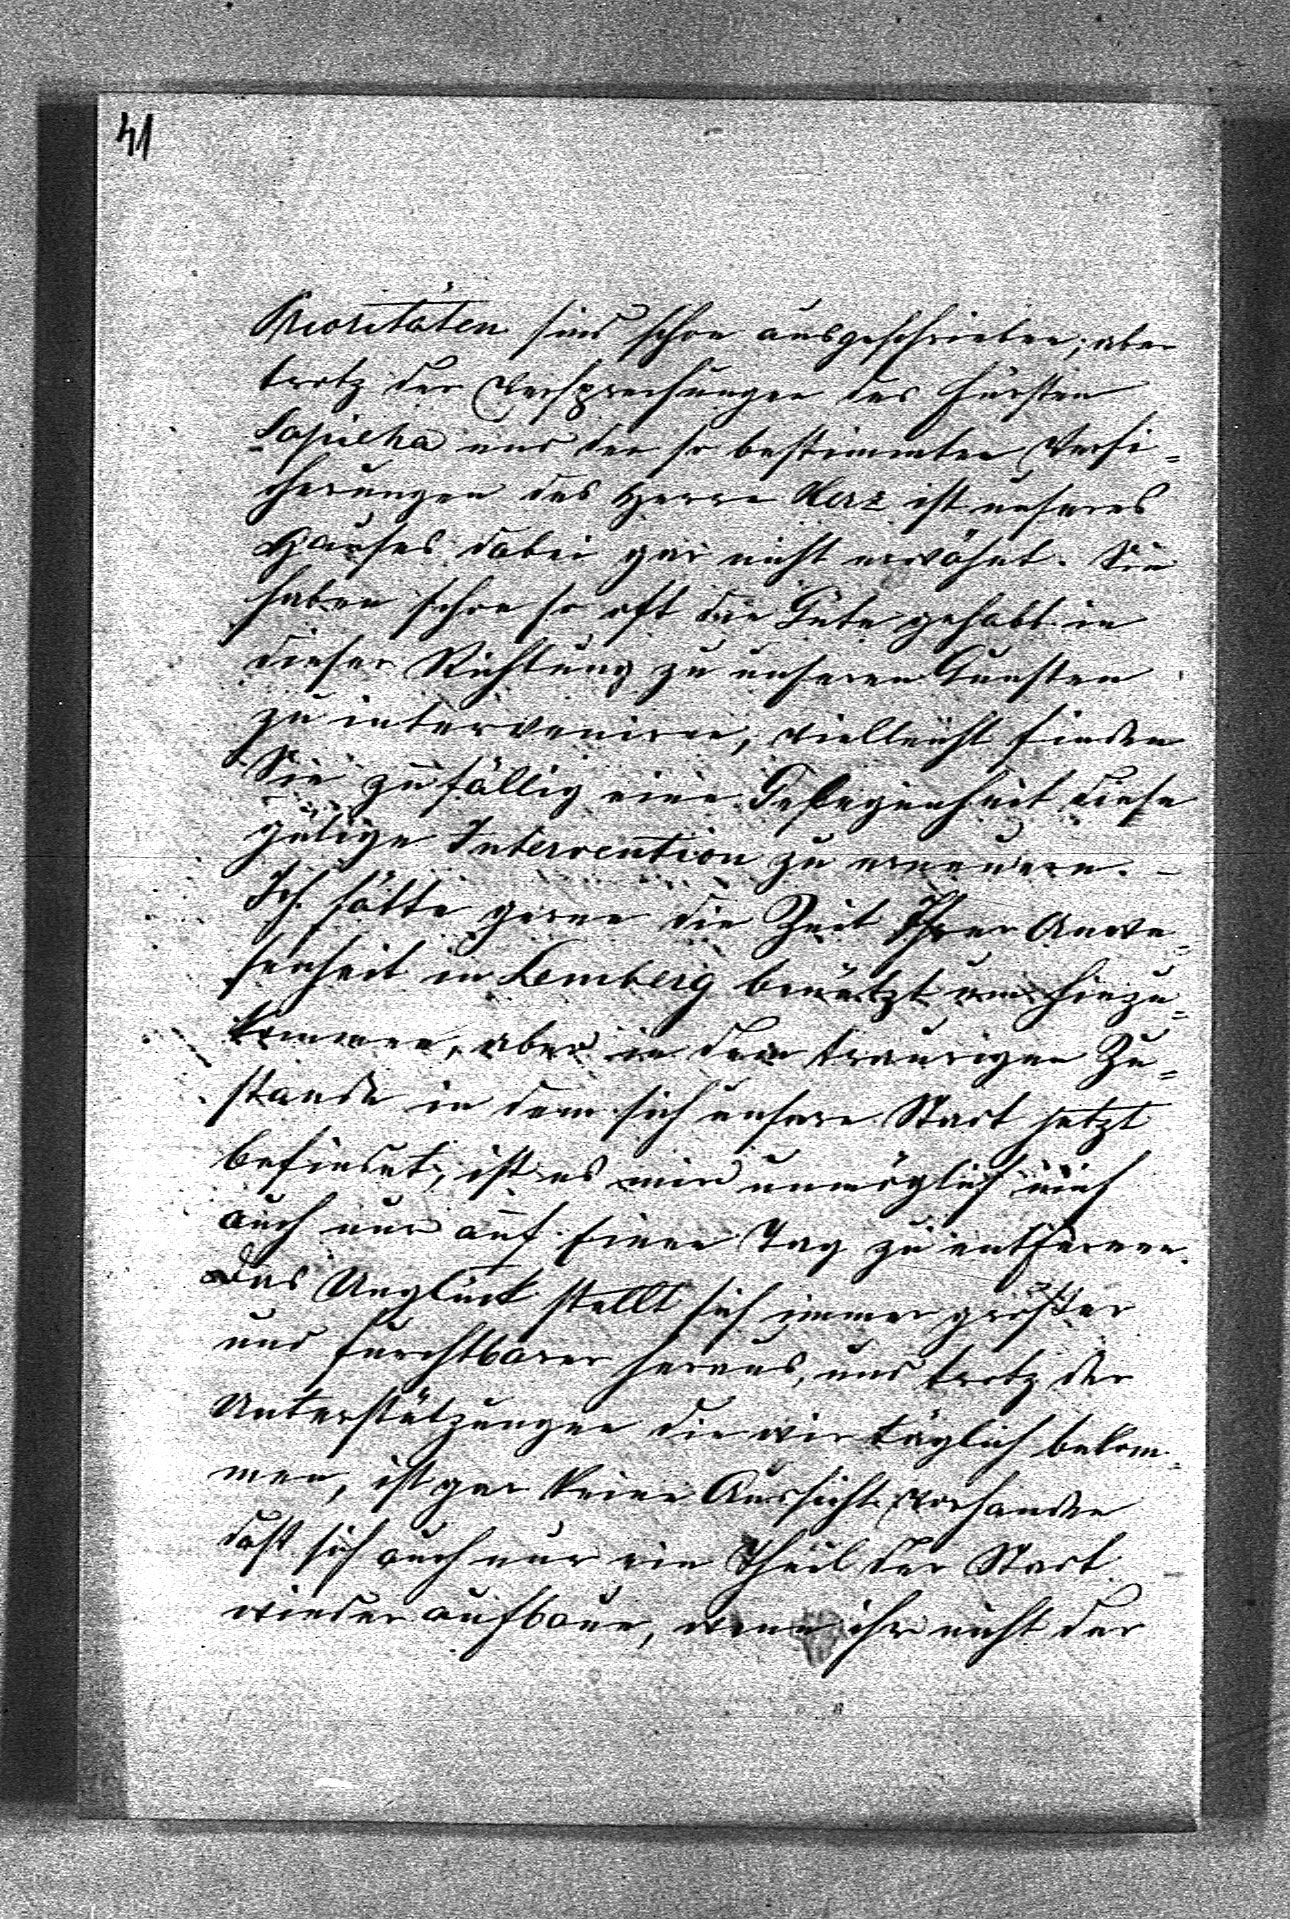 41
Prioritäten sind schon ausgeschrieben; aber
trotz der Versprechungen des Fürsten
Sapieha und der so bestimmten Versi=
cherungen des Herrn Herz ist unseres
Hauses dabei gar nicht erwähnt. Sie
haben schon so oft die Güte gehabt in
dieser Richtung zu unseren Gunsten
zu interveniren, vielleicht finden
Sie zufällig eine Gelegenheit diese
gütige Intervention zu erneuern. –
Ich hätte gerne die Zeit Ihrer Anwe=
senheit in Lemberg benützt um hinzu=
kommen, aber in dem traurigen Zu=
stande in dem sich unsere Stadt jetzt
befindet, ist es mir unmöglich mich
auch nur auf Einen Tag zu entfernen.
Das Unglück stellt sich immer größer
und furchtbarer heraus, und trotz der
Unterstützungen die wir täglich bekom=
men, ist gar keine Aussicht vorhanden
daß sich auch nur ein Theil der Stadt
wieder aufbaue, wenn ihr nicht der